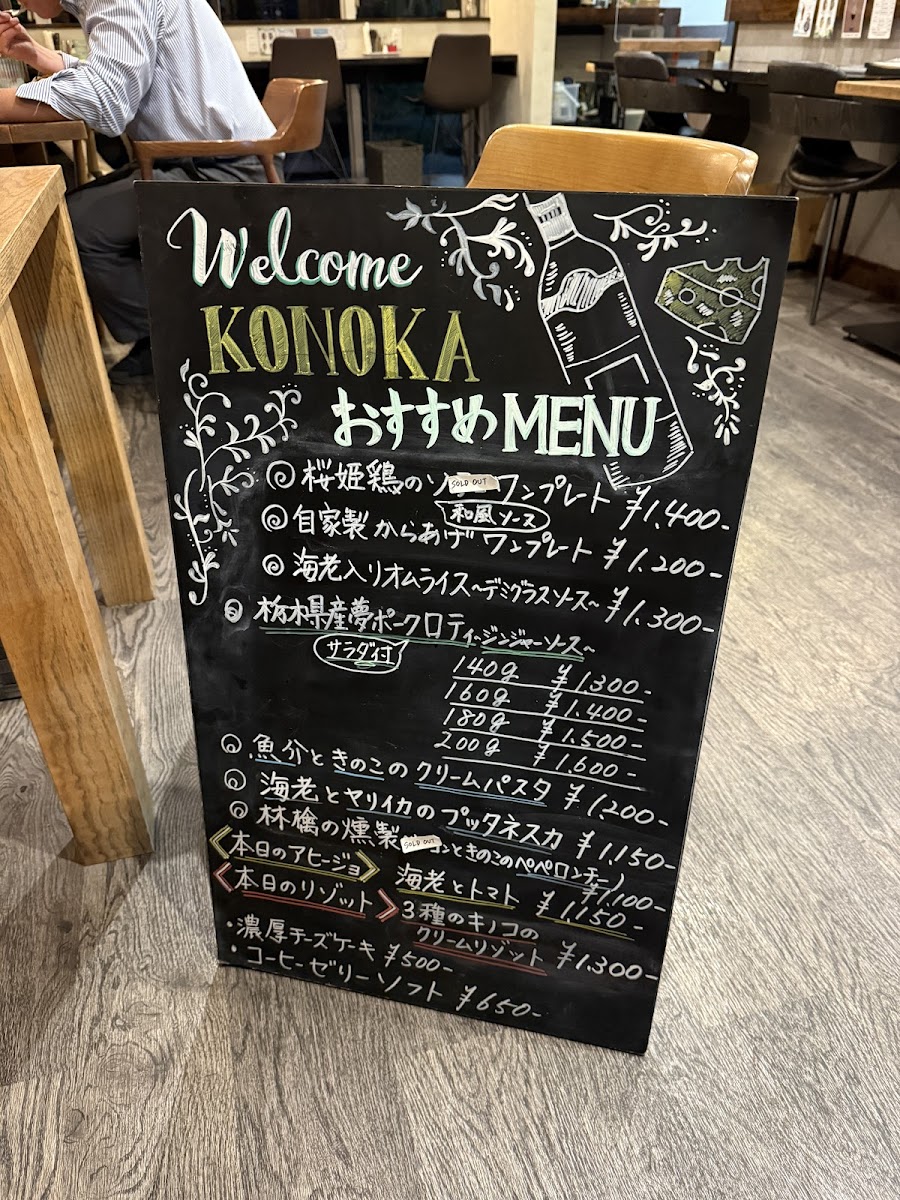 Welcome
KONOKA
おすすめMENU
桜姫鶏のソ SOLD OUT ワンプレート ¥1.400-
和風ソース
自家製からあげワンプレート ¥1.200-
海老入りオムライス〜デミグラスソース〜 ¥1.300-
栃木県産夢ポークロティ〜ジンジャーソース〜
サラダ付
140g ¥1300-
160g ¥1.400-
180g ¥1.500-
200g ¥1.600-
魚介ときのこのクリームパスタ ¥1.200-
海老とヤリイカのプッタネスカ ¥1.150-
林檎の燻製 SOLD OUT コンときのこのペペロンチーノ
¥1.100-
〈本日のアヒージョ〉 海老とトマト ¥1.150-
〈本日のリゾット〉 3種のキノコの
クリームリゾット ¥1.300-
・濃厚チーズケーキ ¥500-
・コーヒーゼリーソフト ¥650-